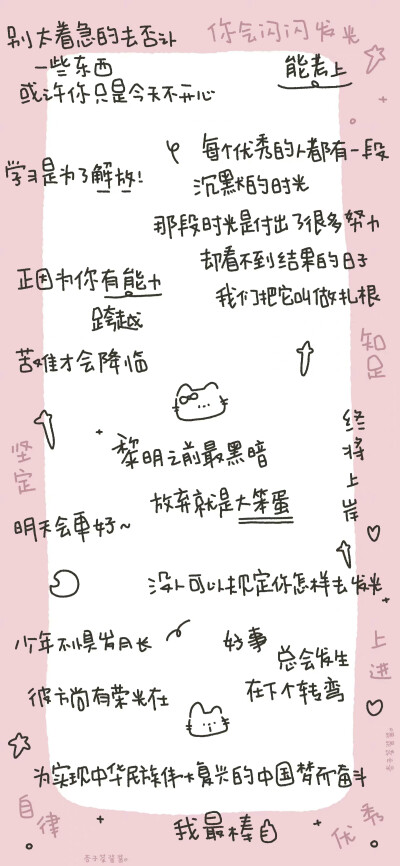 别太着急的去否认
你会闪闪发光
一些东西
能考上
或许你只是今天不开心
每个优秀的人都有一段
学习是为了解放!
沉默的时光
那段时光是付出了很多努力
却看不到结果的日子
正因为你有能力
我们把它叫做扎根
跨越
知足
苦难才会降临
终将上岸
坚定
黎明之前最黑暗
放弃就是大笨蛋
明天会更好~
没人可以规定你怎样去发光
少年不惧岁月长
好事
总会发生
上进
彼方尚有荣光在
在下个转弯
为实现中华民族伟大复兴的中国梦而奋斗
自律
我最棒
优秀